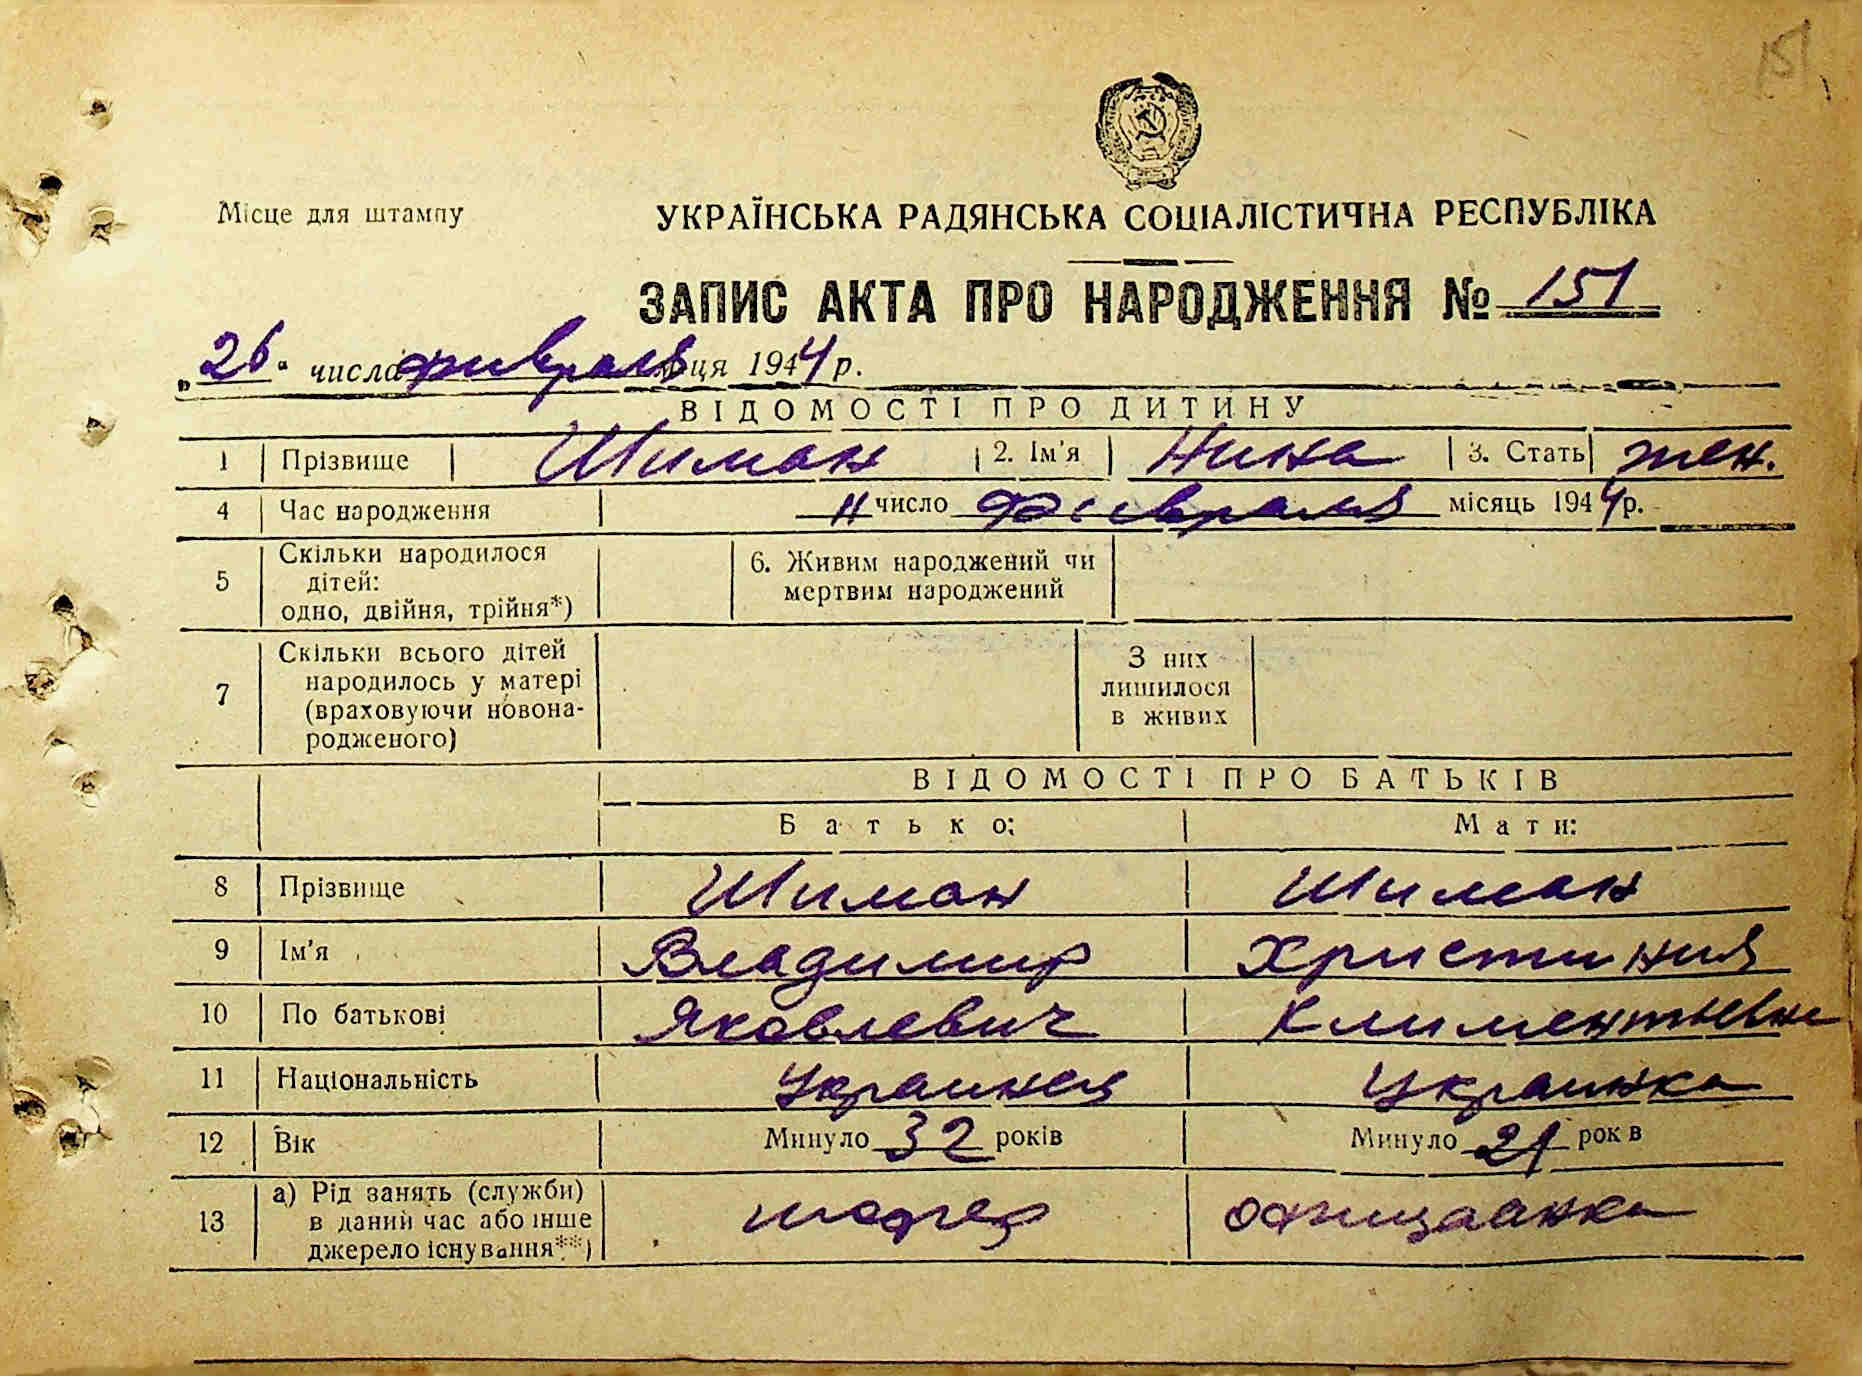 151
Місце для штампу
УКРАЇНСЬКА РАДЯНСЬКА СОЦІАЛІСТИЧНА РЕСПУБЛІКА
ЗАПИС АКТА ПРО НАРОДЖЕННЯ № 151
„26“ числа февраля місяця 1944 р.
ВІДОМОСТІ ПРО ДИТИНУ
1 Прізвище Шиман 2. Ім'я Нина 3. Стать жен.
4 Час народження 11 число февраля місяць 1944 р.
5 Скільки народилося дітей: одно, двійня, трійня*) 6. Живим народжений чи мертвим народжений
7 Скільки всього дітей народилось у матері (враховуючи новонародженого) З них лишилося в живих
ВІДОМОСТІ ПРО БАТЬКІВ
Батько: Мати:
8 Прізвище Шиман Шиман
9 Ім'я Владимир Христиния
10 По батькові Яковлевич Климентьевна
11 Національність Украинец Украинка
12 Вік Минуло 32 років Минуло 21 рок в
13 а) Рід занять (служби) в даний час або інше джерело існування**) шофер